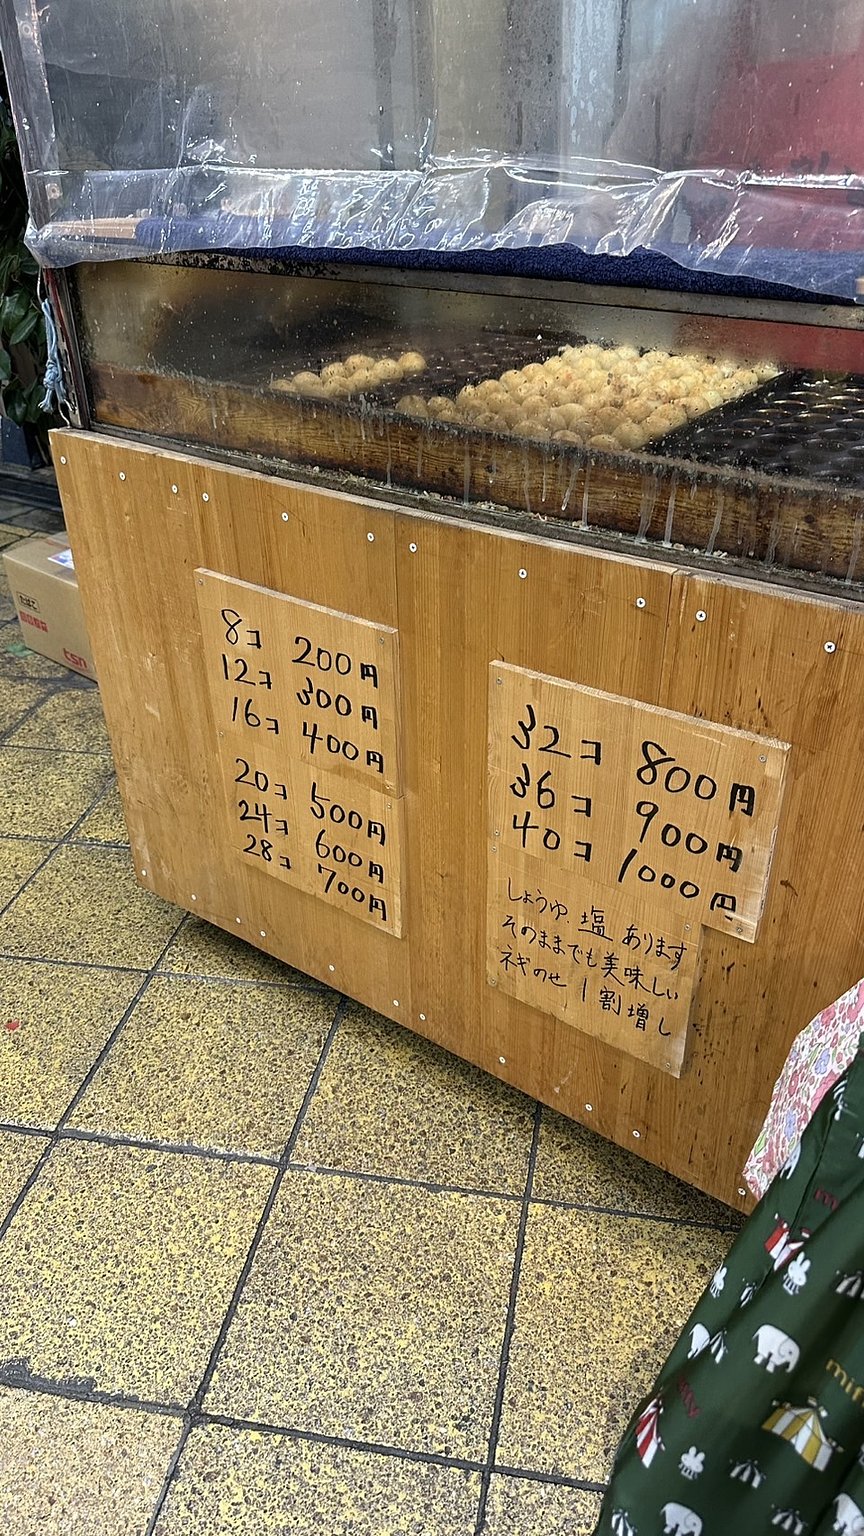 8コ 200円
12コ 300円
16コ 400円
20コ 500円
24コ 600円
28コ 700円
32コ 800円
36コ 900円
40コ 1000円
しょうゆ、塩 あります
そのままでも美味しい
ネギのせ 1割増し
tsn